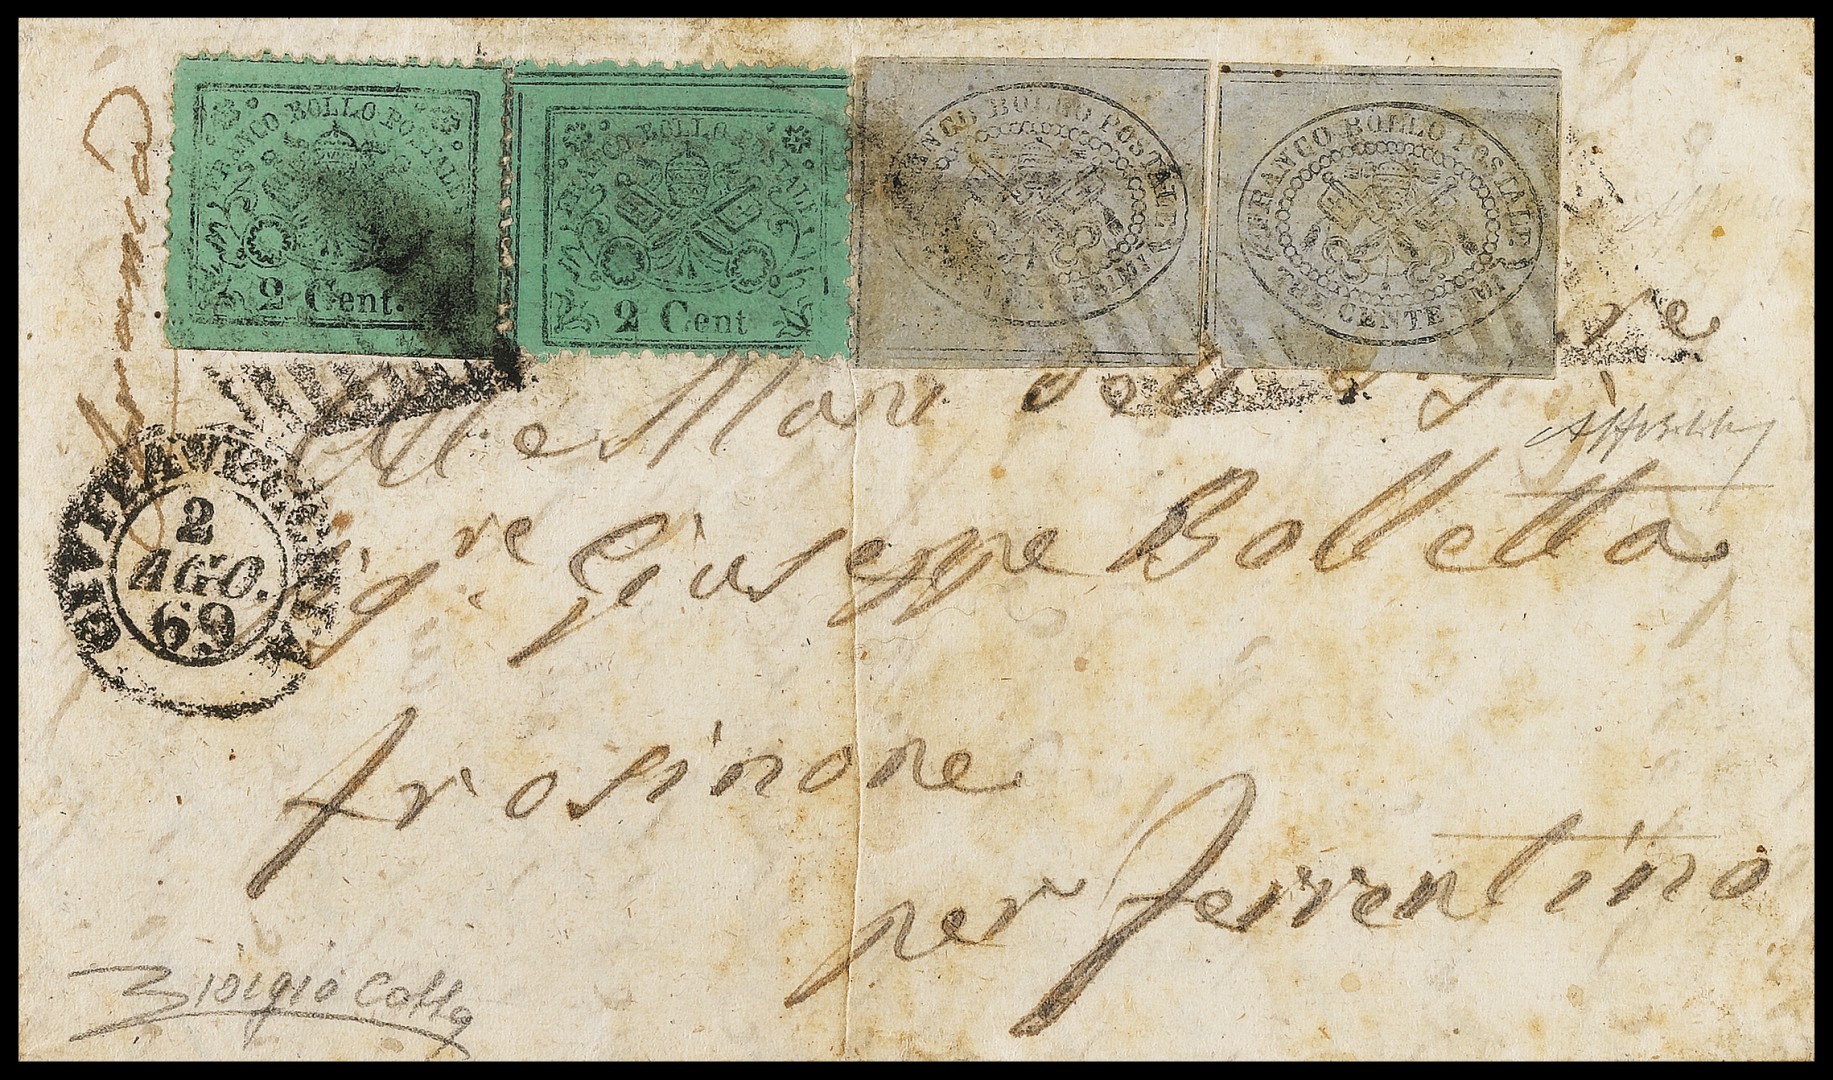 FRANCO BOLLO POSTALE
2 Cent.
FRANCO BOLLO POSTALE
2 Cent
FRANCO BOLLO POSTALE
CENTESIMI
FRANCO BOLLO POSTALE
TRE CENTESIMI
franca
CIVITAVECCHIA
2
AGO.
69
Alle Mani dell
Sigre. Giuseppe Bolletta
frosinone
per ferrentino
Giorgio Colla